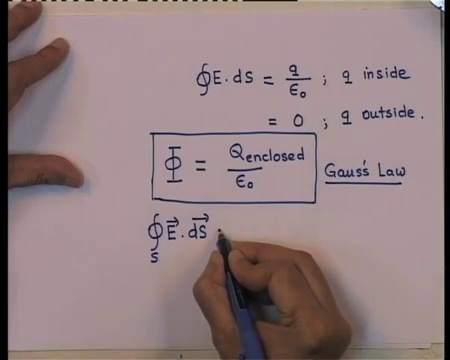 ∮E.ds = q/ε₀ ; q inside
= 0 ; q outside.
Φ = Qenclosed/ε₀ Gauss's Law
∮ₛ E⃗ . dS⃗